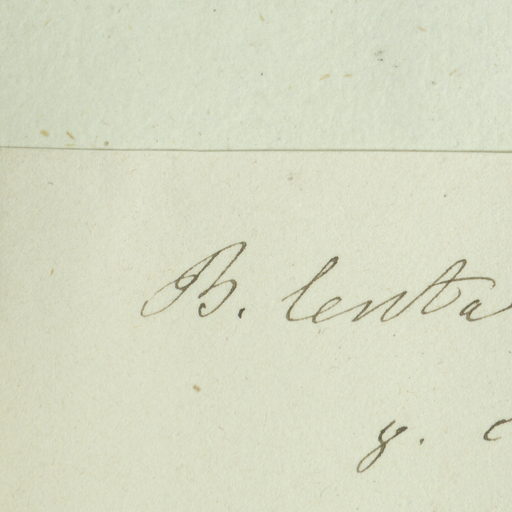 B. lenta
y.